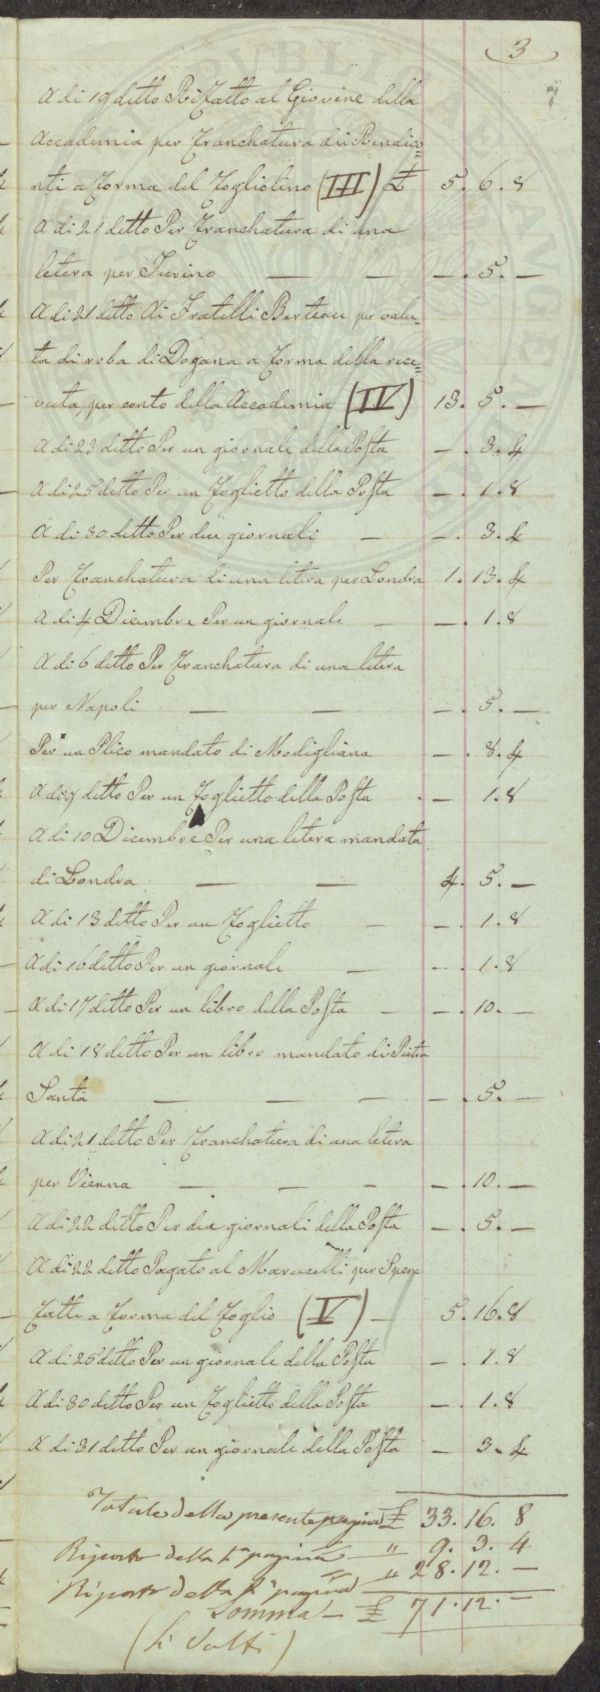 3
A di 19 ditto Rifatto al Giovine della
Accademia per Franchatura dei Rendico=
nti a forma del fogliolino (III) £ 5. 6. 8
A di 21 ditto Per Franchatura di una
letera per Turino — — — . 5. —
A di 21 ditto Ai Fratelli Berteau per valu=
ta di roba di Dogana a forma della rice=
vuta, per conto della Accademia (IV) 13. 5. —
A di 23 ditto Per un giornale della Posta — . 3. 4
A di 25 ditto Per un Foglietto della Posta — . 1. 8
A di 30 ditto Per due giornali — — . 3. 4
Per Franchatura di una letera per Londra 1. 13. 4
A di 4 Dicembre Per un giornale — — . 1. 8
A di 6 ditto Per Franchatura di una letera
per Napoli — — — . 5. —
Per un Plico mandato di Modigliana — . 8. 4
A di 9 ditto Per un Foglietto della Posta . — 1. 8
A di 10 Dicembre Per una letera mandata
di Londra — — 4. 5. —
A di 13 ditto Per un Foglietto — — . 1. 8
A di 16 ditto Per un giornale — — . 1. 8
A di 17 ditto Per un libro della Posta — — . 10. —
A di 18 ditto Per un libro mandato di Pietra
Santa — — — — . 5. —
A di 21 ditto Per Franchatura di una letera
per Vienna — — — — . 10. —
A di 22 ditto Per due giornali della Posta — . 5. —
A di 22 ditto Pagato al Marucelli per Spese
Fatte a forma del Foglio (V) — 5. 16. 8
A di 25 ditto Per un giornale della Posta — . 1. 8
A di 30 ditto Per un Foglietto della Posta — . 1. 8
A di 31 ditto Per un giornale della Posta — 3. 4
Totale della presente pagina £ 33. 16. 8
Riporto della 1ª pagina — " 9. 3. 4
Riporto della 2ª pagina — " 28. 12. —
Somma — £ 71. 12. —
(Si Volti)